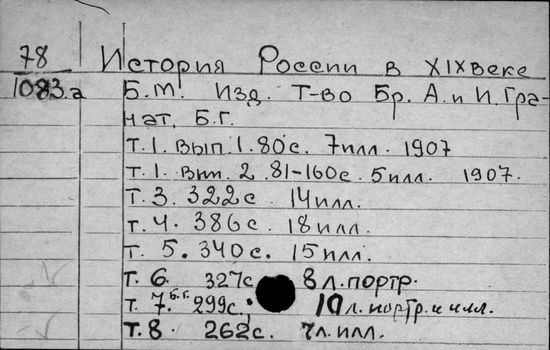 78 История России в XIX веке
1083.а Б.М. Изд. Т-во Бр. А. и И. Гра-
нат, Б.Г.
Т.1. вып 1. 80с. 7илл. 1907
Т.1. вып. 2. 81-160с. 5илл. 1907.
Т.3. 322с. 14илл.
т.4. 386с. 18илл.
т. 5. 340с. 15илл.
т. 6. 327с. 8л.портр.
т. 7. Б.Г. 299с. 10л.портр.и илл.
т.8. 262с. 7л.илл.